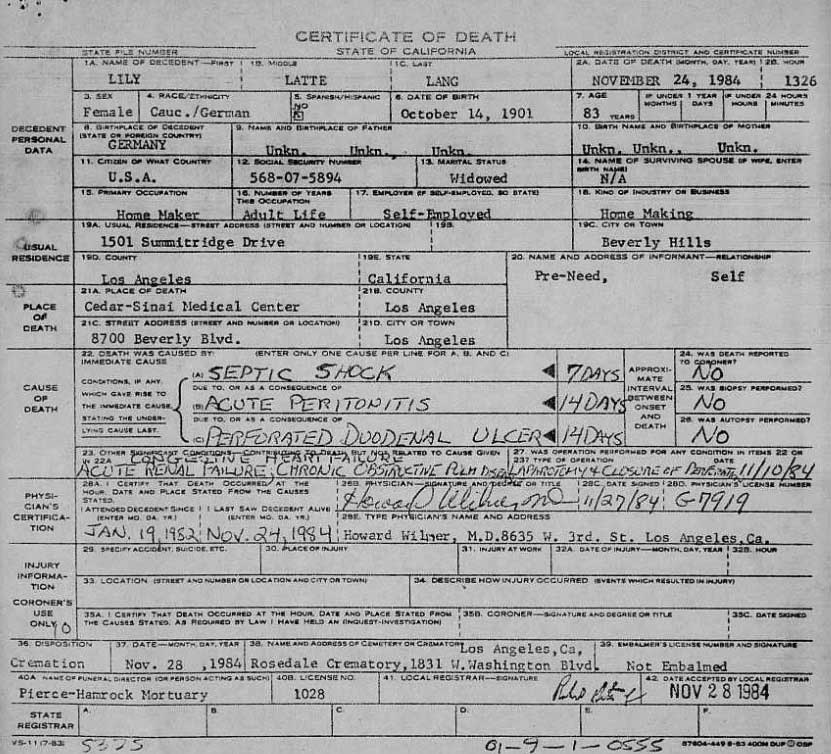 CERTIFICATE OF DEATH
STATE FILE NUMBER STATE OF CALIFORNIA LOCAL REGISTRATION DISTRICT AND CERTIFICATE NUMBER
1A. NAME OF DECEDENT—FIRST 1B. MIDDLE 1C. LAST 2A. DATE OF DEATH (MONTH, DAY, YEAR) 2B. HOUR
LILY LATTE LANG NOVEMBER 24, 1984 1326
3. SEX 4. RACE/ETHNICITY 5. SPANISH/HISPANIC 6. DATE OF BIRTH 7. AGE IF UNDER 1 YEAR IF UNDER 24 HOURS
NO MONTHS DAYS HOURS MINUTES
Female Cauc./German October 14, 1901 83 YEARS
DECEDENT PERSONAL DATA
8. BIRTHPLACE OF DECEDENT (STATE OR FOREIGN COUNTRY) 9. NAME AND BIRTHPLACE OF FATHER 10. BIRTH NAME AND BIRTHPLACE OF MOTHER
GERMANY Unkn. Unkn., Unkn. Unkn. Unkn., Unkn.
11. CITIZEN OF WHAT COUNTRY 12. SOCIAL SECURITY NUMBER 13. MARITAL STATUS 14. NAME OF SURVIVING SPOUSE (IF WIFE, ENTER BIRTH NAME)
U.S.A. 568-07-5894 Widowed N/A
15. PRIMARY OCCUPATION 16. NUMBER OF YEARS THIS OCCUPATION 17. EMPLOYER (IF SELF-EMPLOYED, SO STATE) 18. KIND OF INDUSTRY OR BUSINESS
Home Maker Adult Life Self-Employed Home Making
USUAL RESIDENCE
19A. USUAL RESIDENCE—STREET ADDRESS (STREET AND NUMBER OR LOCATION) 19B. 19C. CITY OR TOWN
1501 Summitridge Drive Beverly Hills
19D. COUNTY 19E. STATE 20. NAME AND ADDRESS OF INFORMANT—RELATIONSHIP
Los Angeles California Pre-Need, Self
PLACE OF DEATH
21A. PLACE OF DEATH 21B. COUNTY
Cedar-Sinai Medical Center Los Angeles
21C. STREET ADDRESS (STREET AND NUMBER OR LOCATION) 21D. CITY OR TOWN
8700 Beverly Blvd. Los Angeles
CAUSE OF DEATH
22. DEATH WAS CAUSED BY: (ENTER ONLY ONE CAUSE PER LINE FOR A, B, AND C) 24. WAS DEATH REPORTED TO CORONER?
IMMEDIATE CAUSE
(A) SEPTIC SHOCK 7 DAYS NO
CONDITIONS, IF ANY, WHICH GAVE RISE TO THE IMMEDIATE CAUSE, STATING THE UNDERLYING CAUSE LAST.
DUE TO, OR AS A CONSEQUENCE OF APPROXIMATE INTERVAL BETWEEN ONSET AND DEATH 25. WAS BIOPSY PERFORMED?
(B) ACUTE PERITONITIS 14 DAYS NO
DUE TO, OR AS A CONSEQUENCE OF 26. WAS AUTOPSY PERFORMED?
(C) PERFORATED DUODENAL ULCER 14 DAYS NO
23. OTHER SIGNIFICANT CONDITIONS—CONTRIBUTING TO DEATH BUT NOT RELATED TO CAUSE GIVEN IN 22A 27. WAS OPERATION PERFORMED FOR ANY CONDITION IN ITEMS 22 OR 23? TYPE OF OPERATION DATE
CONGESTIVE HEART FAILURE
ACUTE RENAL FAILURE; CHRONIC OBSTRUCTIVE PULM LAPAROTOMY & CLOSURE OF 11/10/84
PHYSICIAN'S CERTIFICATION
28A. I CERTIFY THAT DEATH OCCURRED AT THE HOUR, DATE AND PLACE STATED FROM THE CAUSES STATED. 28B. PHYSICIAN—SIGNATURE AND DEGREE OR TITLE 28C. DATE SIGNED 28D. PHYSICIAN'S LICENSE NUMBER
Howard Wilner, MD 11/27/84 G-7919
I ATTENDED DECEDENT SINCE (ENTER MO. DA. YR.) I LAST SAW DECEDENT ALIVE (ENTER MO. DA. YR.) 28E. TYPE PHYSICIAN'S NAME AND ADDRESS
JAN. 19, 1982 NOV. 24, 1984 Howard Wilner, M.D. 8635 W. 3rd. St. Los Angeles, Ca.
INJURY INFORMATION
29. SPECIFY ACCIDENT, SUICIDE, ETC. 30. PLACE OF INJURY 31. INJURY AT WORK 32A. DATE OF INJURY—MONTH, DAY, YEAR 32B. HOUR
33. LOCATION (STREET AND NUMBER OR LOCATION AND CITY OR TOWN) 34. DESCRIBE HOW INJURY OCCURRED (EVENTS WHICH RESULTED IN INJURY)
CORONER'S USE ONLY
35A. I CERTIFY THAT DEATH OCCURRED AT THE HOUR, DATE AND PLACE STATED FROM THE CAUSES STATED. AS REQUIRED BY LAW I HAVE HELD AN (INQUEST-INVESTIGATION) 35B. CORONER—SIGNATURE AND DEGREE OR TITLE 35C. DATE SIGNED
36. DISPOSITION 37. DATE—MONTH, DAY, YEAR 38. NAME AND ADDRESS OF CEMETERY OR CREMATORY 39. EMBALMER'S LICENSE NUMBER AND SIGNATURE
Los Angeles, Ca,
Cremation Nov. 28 ,1984 Rosedale Crematory, 1831 W. Washington Blvd. Not Embalmed
40A. NAME OF FUNERAL DIRECTOR (OR PERSON ACTING AS SUCH) 40B. LICENSE NO. 41. LOCAL REGISTRAR—SIGNATURE 42. DATE ACCEPTED BY LOCAL REGISTRAR
Pierce-Hamrock Mortuary 1028 NOV 28 1984
STATE REGISTRAR A. B. C. D. E. F.
VS-11 (7-83) 5325 01-9-1-0555